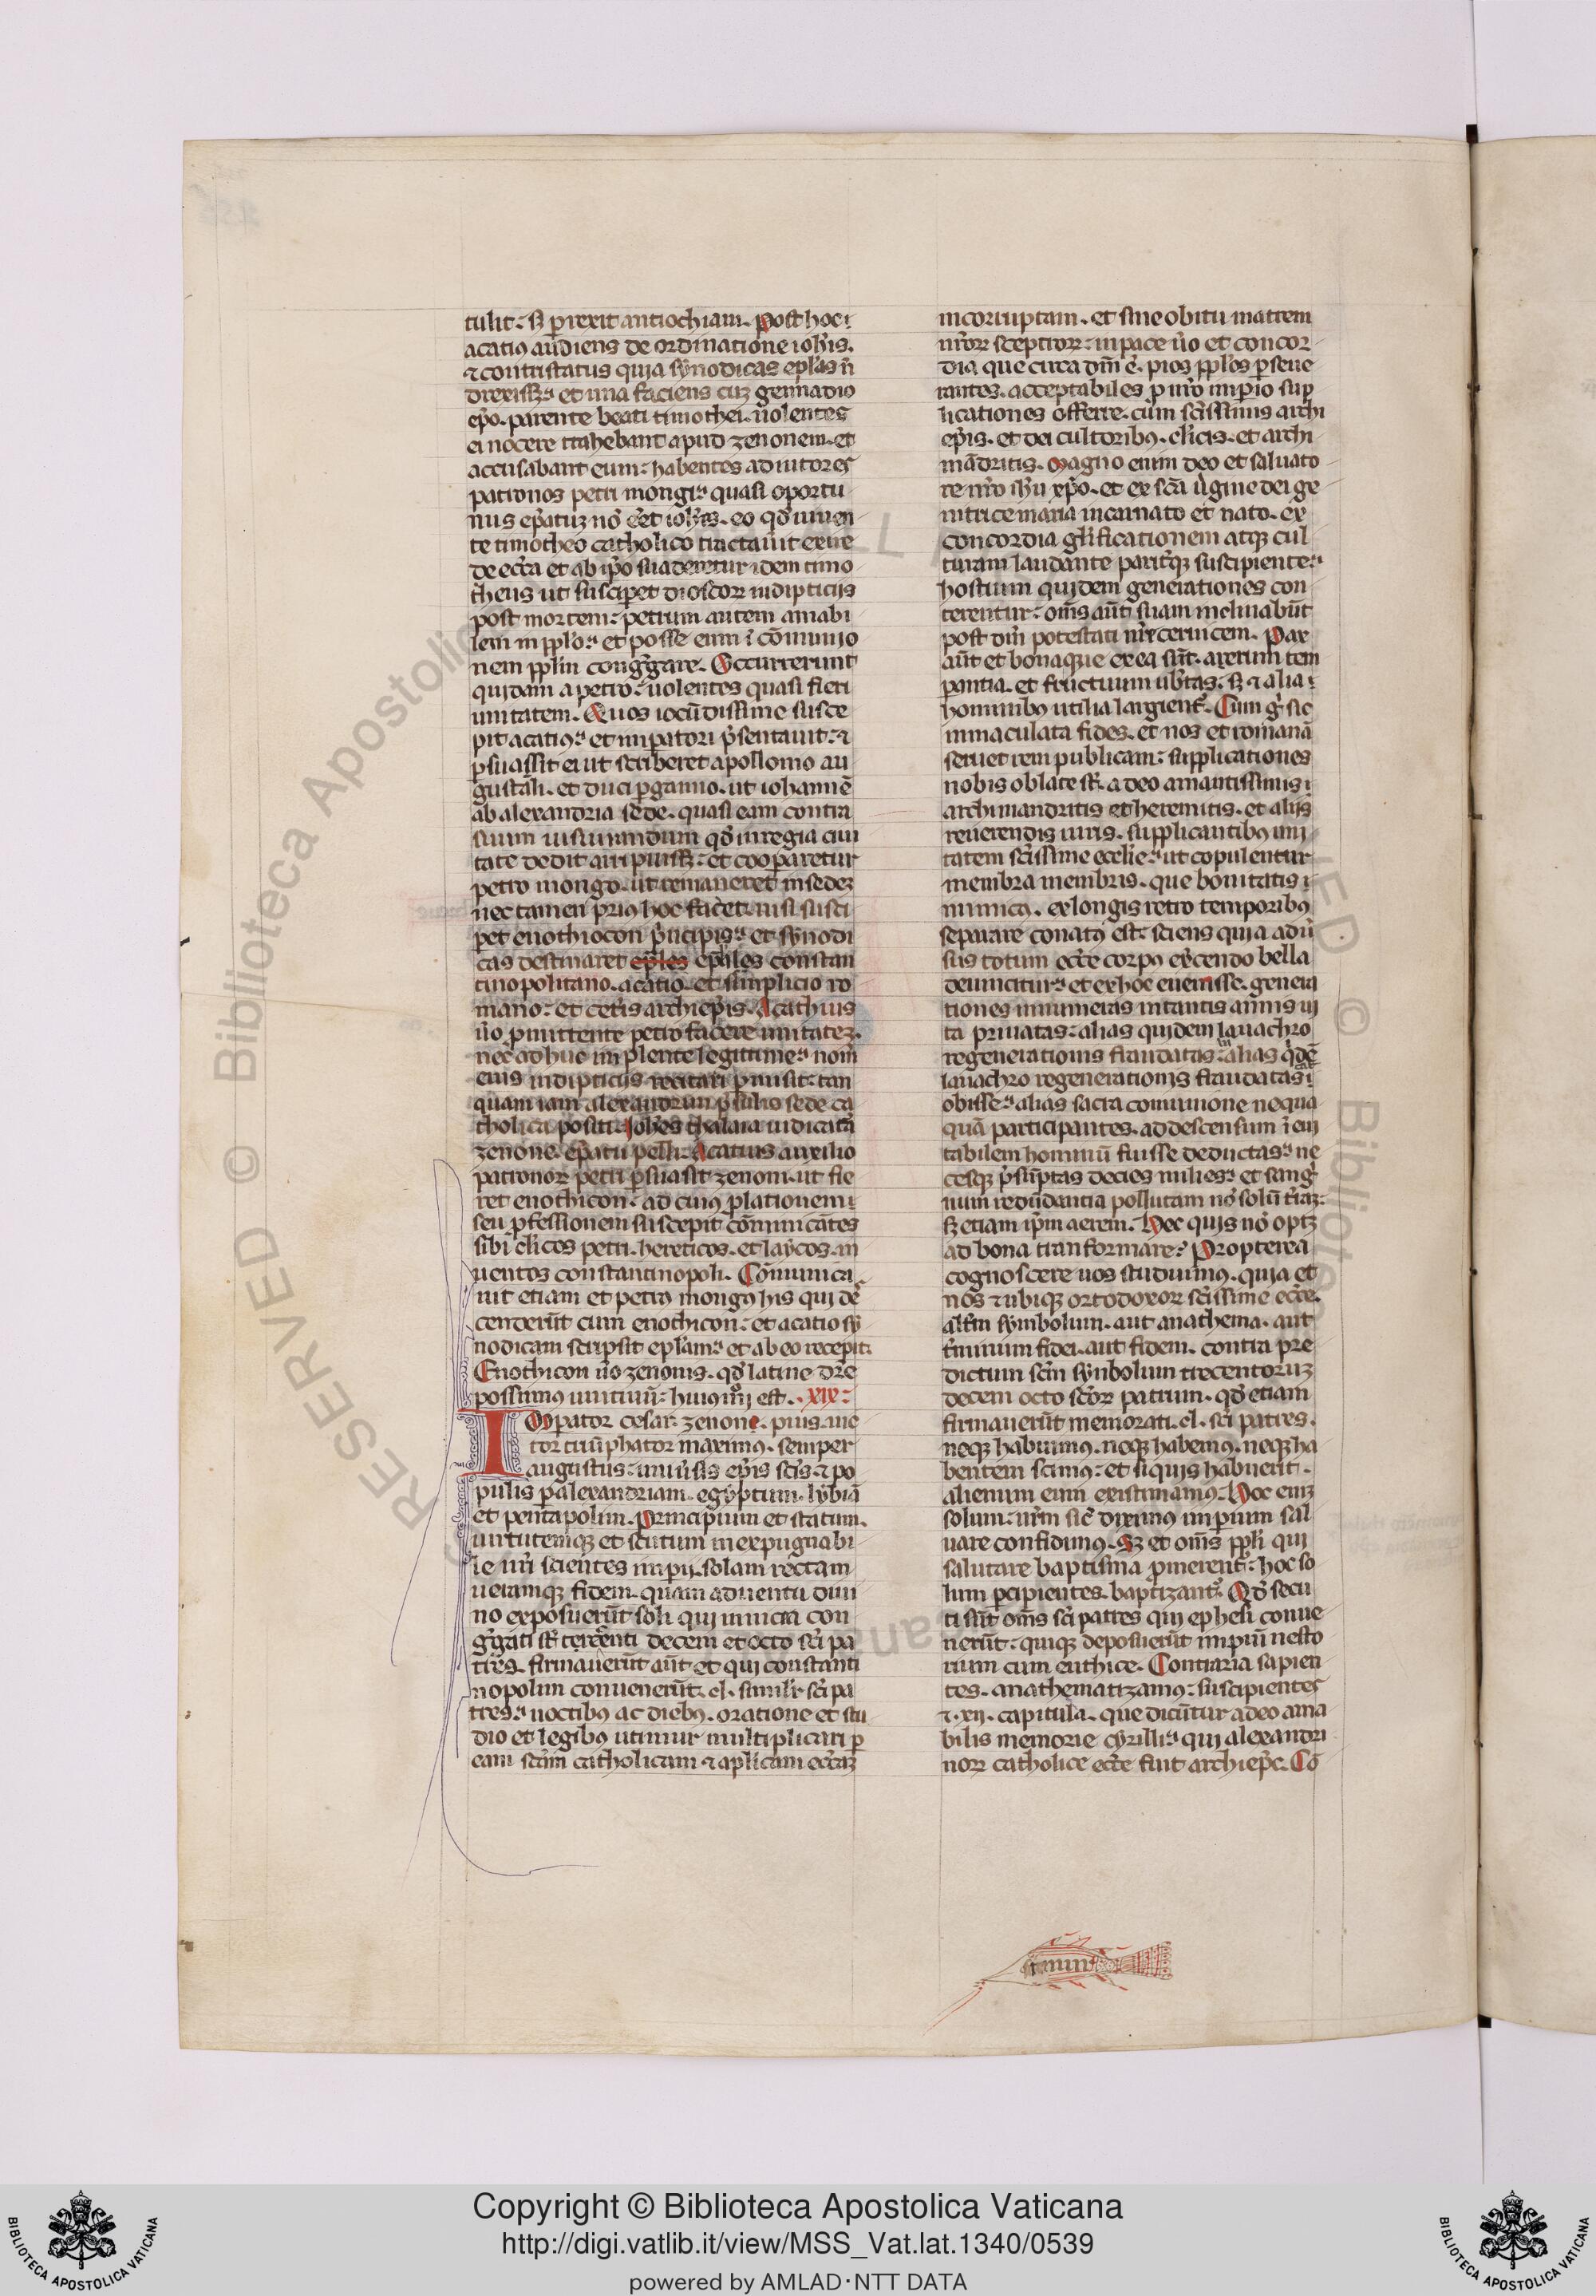 tulit: ꝫ prexit antiochiam. Post hoc:
acatiꝰ audiens de ordinatione ioh̄is.
⁊ contristatus quia synodicas ep̄las n̄
direxissꝫ: et una faciens cuꝫ gennadio
ep̄o. parente beati timothei. uolentes
ei nocere trahebant apud zenonem. et
accusabant eum: habentes adiutores
patronos petri mongi: quasi oportu
nus ep̄atuꝫ nō eēt ioh̄is. eo qd̄ uiuen
te timotheo catholico tractauit exire
de ecc̄a et ab ip̄o suaderetur idem timo
theus ut susciperet dioscoꝝ in dipticiis
post mortem: petrum autem amabi
lem in pp̄lo: et posse eum ī cōmunio
nem pp̄lm cong̃gare. Occurrerunt
quidam a petro: uolentes quasi fieri
unitatem. Quos iocūdissime susce
pit acatiꝰ: et imꝑatori p̃sentauit: ⁊
ꝑsuassit ei ut scriberet apollonio au
gustali. et duci ꝑgamio. ut iohannē
ab alexandria sede. quasi eam contra
suum iusiurandum qd̄ in regia ciui
tate dedit arripuissꝫ: et cooperaretur
petro mongo. ut remaneret in sedeꝫ
nec tamen priꝰ hoc faceret. nisi susci
peret enothiocon p̃ncipis: et synodi
cas destinaret ep̄les ep̄ales constan
tinopolitano. acatio. et simplicio ro
mano: et cet̃is archiep̄is. Acathius
ũo ꝓmittente petro facere unitateꝫ.
nec adhuc implente legittime: nom̄
eius in dipticiis recitari ꝑmisit: tan
quam iam alexandrin p̃sulis sede ca
tholica positi. Ioh̄es thalaia iudicata
zenone. ep̄atu pelli. Acatius auxilio
patronoꝝ petri ꝑsuasit zenoni. ut fie
ret enothicon: ad cuiꝰ ꝓlationem:
seu ꝓfessionem suscepit cōmunicātes
sibi cl̄icos petri. hereticos. et laycos. in
uentos constantinopoli. Cōmunica
uit etiam et petrus mongꝰ his qui de
cenderūt cum enothicon: et acatio sy
nodicam scripsit ep̄lam: et ab eo recepit.
Enothicon ũo zenonis. qd̄ latine dr̄e
possumus unitiuū: huiꝰmōi est. .xix:
IMperator cesar. zenone. pius. uic
tor triūphator maximꝰ. semper
augustus: uniũsis ep̄is scīs ⁊ po
pulis ꝑ alexandriam. egyptum. lybiā
et pentapolim. Principium et statum.
uirtutemqꝫ et scutum inexpugnabi
le nr̄i scientes imperij. solam rectam
ueramqꝫ fidem. quam aduentu diui
no exposuerūt soli qui in nicea con
g̃gati sūt trecenti decem et octo scī pa
tres. firmauerūt aūt et qui constanti
nopolim conuenerūt. cl. similr̄ scī pa
tres: noctibus ac diebꝰ. oratione et stu
dio et legibꝰ utimur multiplicari ꝑ
eam scām catholicam ⁊ aplicam ecc̄aꝫ
incorruptam. et sine obitu matrem
nr̄oꝝ sceptroꝝ: in pace ũo et concor
dia que circa dm̄ ē. pios pp̄los perseue
rantes. acceptabiles ꝑ nr̄o imꝑio sup
plicationes offerre. cum scīssimis archi
ep̄is. et dei cultoribꝰ. cl̄icis. et archi
mādritis. Magno enim deo et saluato
re nr̄o ih̄u xp̄o. et ex scā ũgine dei ge
nitrice maria incarnato et nato. ex
concordia gl̄ificationem atqꝫ cul
turam laudante paritqꝫ suscipiente:
hostium quidem generationes con
terentur: om̄s aūt suam inclinabūt
post dm̄ potestati nr̄e ceruicem. Pax
aūt et bona que ex ea sūt. aerum tem
perantia. et fructuum ub̄tas: ꝫ ⁊ alia:
hominibꝰ utilia largient̃. Cum g̃ sic
immaculata fides. et nos et romanā
seruet rem publicam: supplicationes
nobis oblate sūt. a deo amantissimis:
archimandritis et heremitis. et aliis
reuerendis uiris. supplicantibꝰ uni
tatem scīssime ecclīe: ut copulentur
membra membris. que bonitatis:
inimicꝰ. ex longis retro temporibꝰ
separare conatꝰ est: sciens quia adũ
sus totum ecc̄e corpus ex̃cendo bella
deuincitur: et ex hoc euenisse. genera
tiones innumeras in tantis annis ui
ta priuatas: alias quidem lauachro
regenerationis fraudatas: alias q̃dē
lauachro regenerationis fraudatas:
obisse: alias sacra comunione nequa
quā participantes. ad descensum ieui
tabilem hominū fuisse deductas: ne
cesqꝫ p̃sūptas decies milies: et sang̃
num redūdantia pollutam nō solū t̃raꝫ:
ꝫ etiam ip̄m aerem. Hec quis nō optꝫ
ad bona transformare? Propterea
cognoscere uos studuimꝰ. quia et
nos ⁊ ubiqꝫ ortodoxoꝝ scīssime ecc̄e.
alt̃m symbolum. aut anathema. aut
t̃minum fidei. aut fidem. contra pre
dictum scm̄ synbolum trecentoruꝫ
decem octo scōꝝ patrum. qd̄ etiam
firmauerūt memorati. cl. scī patres.
neqꝫ habuimꝰ. neqꝫ habemꝰ. neqꝫ ha
bentem scimꝰ: et si quis habuerit.
alienum eum existimamꝰ. Hoc eniꝫ
solum: ur̄m sic̄ diximus imperium sal
uare confidimꝰ. ꝫ et om̄s pp̄li qui
salutare baptisma ꝓmerent̃: hoc so
lum ꝑcipientes. baptizant̃. Qd̄ secu
ti sūt om̄s scī patres qui ephesi conue
nerūt: quiqꝫ deposuerūt impiū nesto
rium cum euthice. Contraria sapien
tes. anathematizamꝰ: suscipientes
⁊ .xij. capitula. que dicūtur a deo ama
bilis memorie cyrilli: qui alexandri
noꝝ catholice ecc̄e fuit archiep̄c. Co
Copyright © Biblioteca Apostolica Vaticana
http://digi.vatlib.it/view/MSS_Vat.lat.1340/0539
powered by AMLAD·NTT DATA